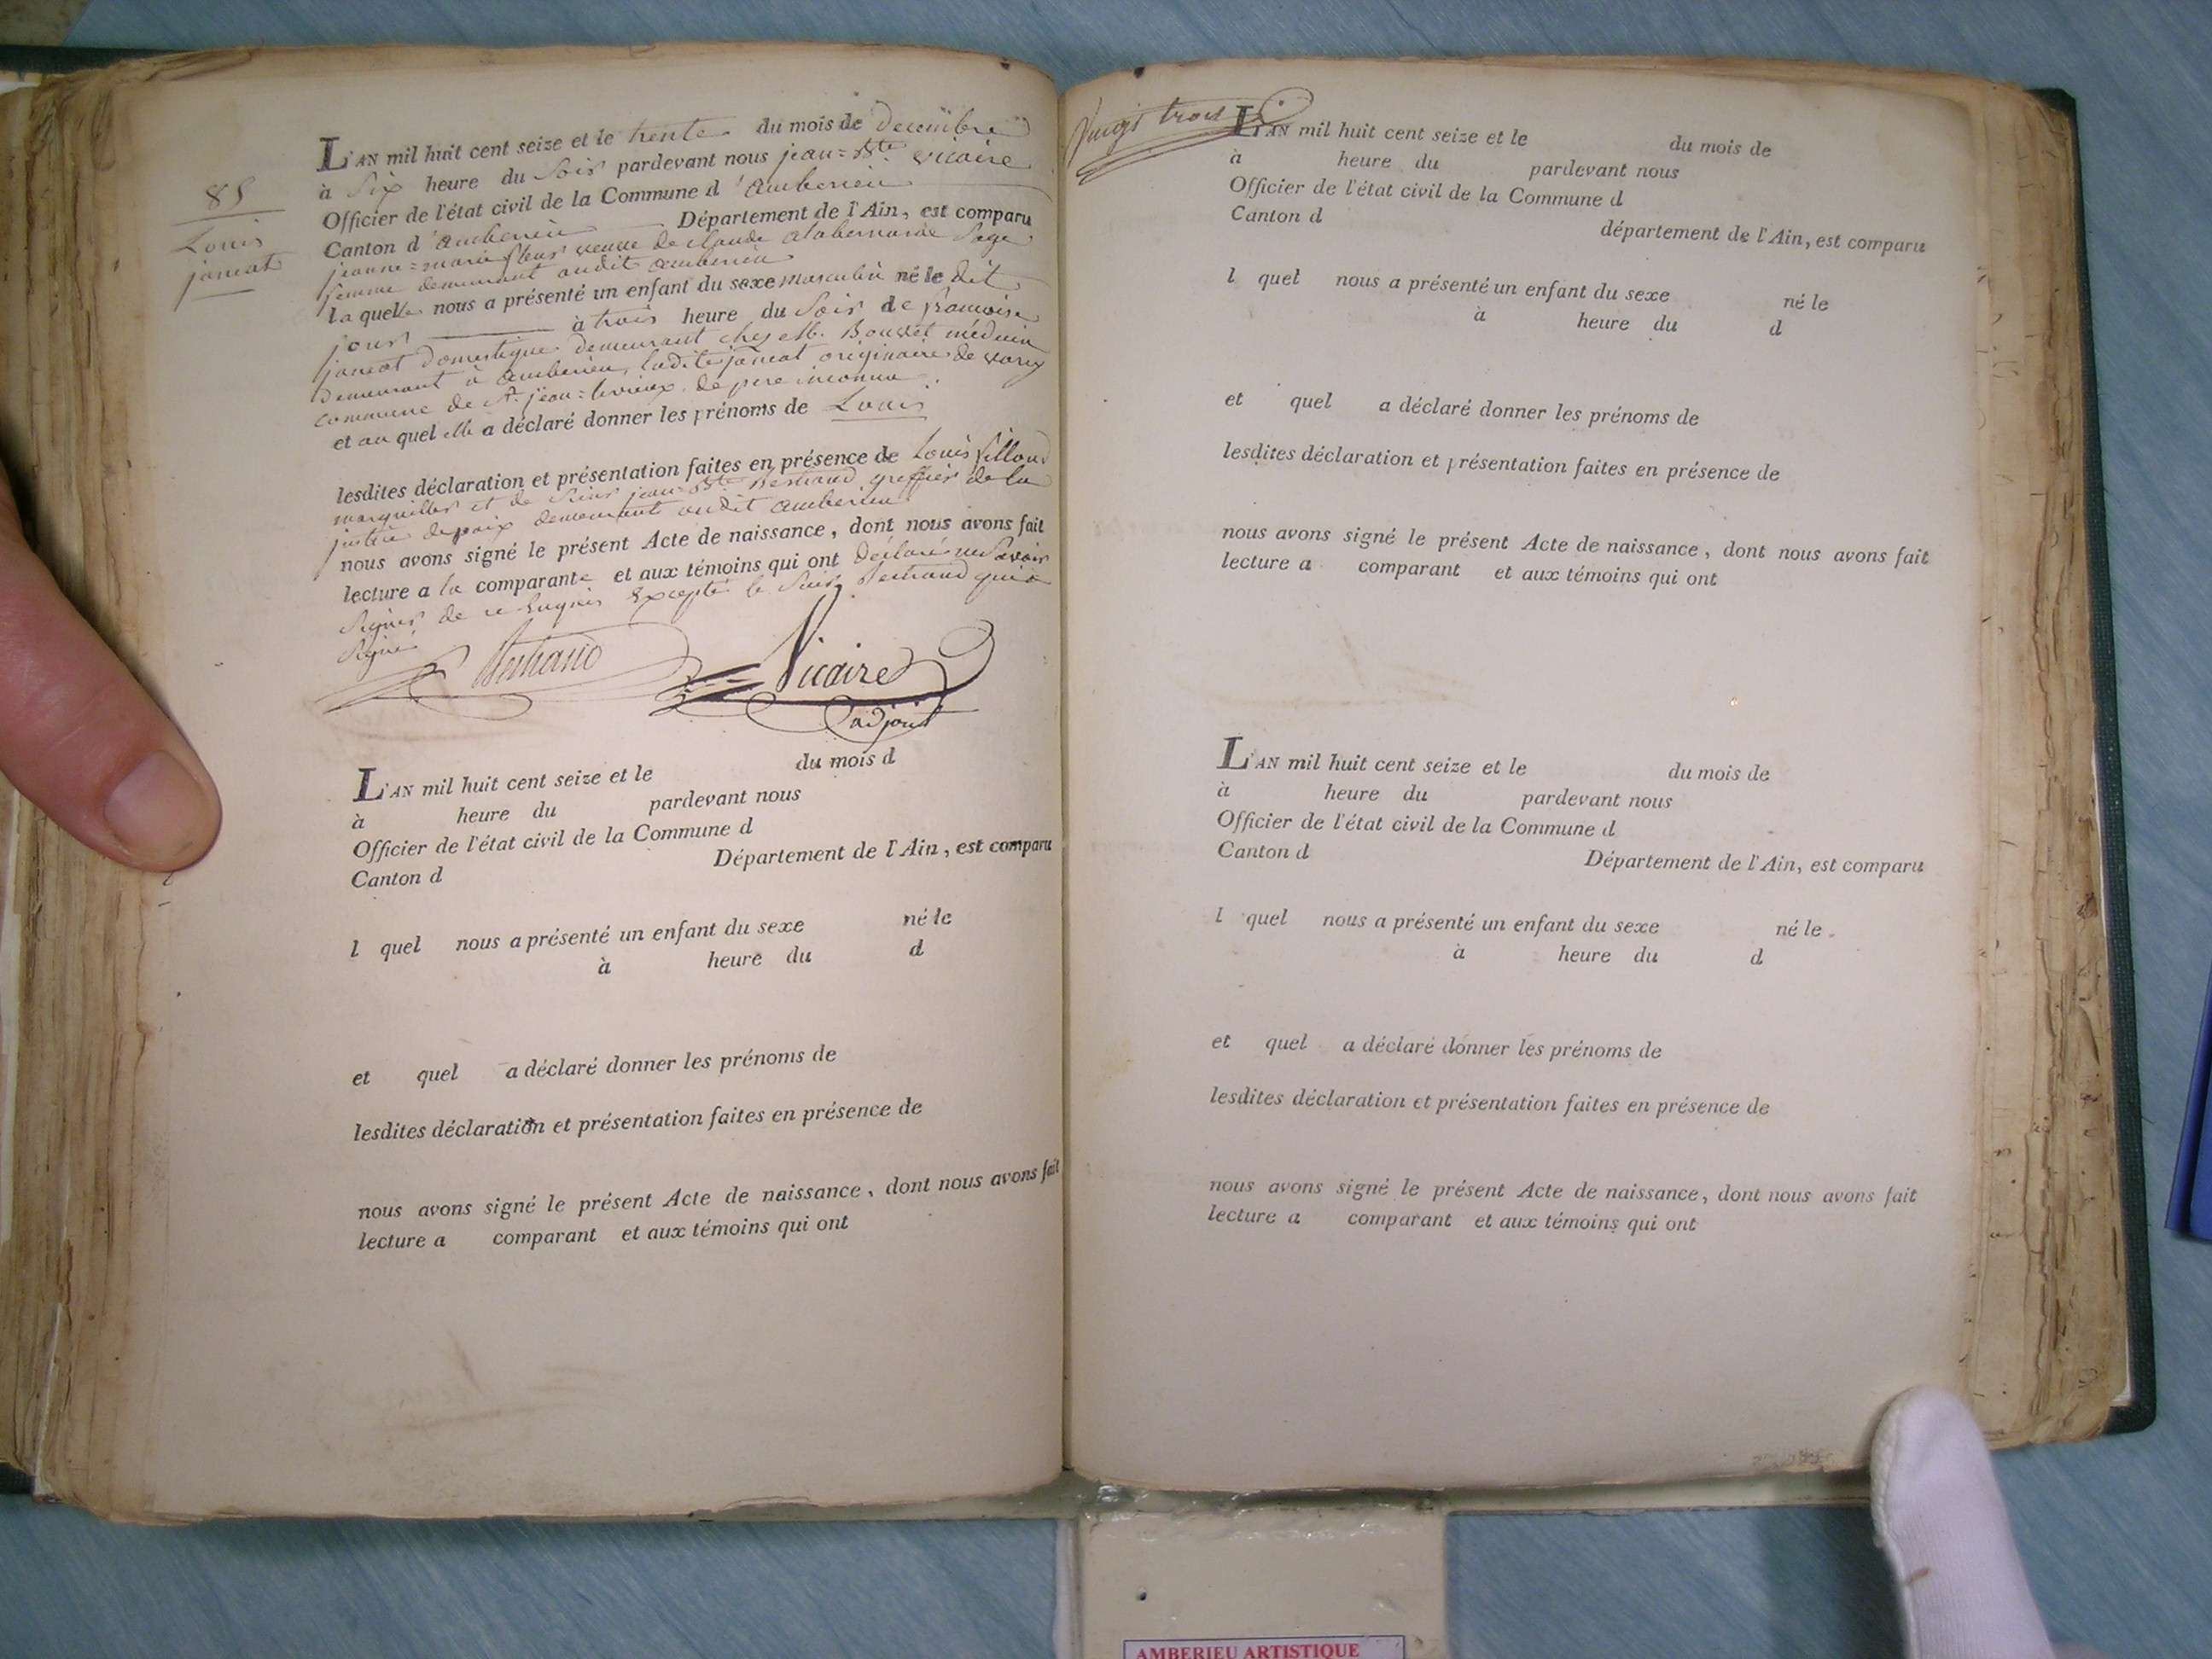 85
Louis
janeat
L'AN mil huit cent seize et le trente du mois de decembre
à six heure du soir pardevant nous jean=Bte. vicaire
Officier de l'état civil de la Commune d'amberieu
Canton d'amberieu Département de l'Ain, est comparu
jeanne=marie fleur veuve de claude alabernarde sage
femme demeurant audit amberieu
laquelle nous a présenté un enfant du sexe masculin né le dit
jour à trois heure du soir de francoise
janeat domestique demeurant chez M. Bouvet médecin
demeurant à amberieu, ladite janeat originaire de varey
commune de St. jean=levieux de pere inconnu.
et au quel elle a déclaré donner les prénoms de Louis
lesdites déclaration et présentation faites en présence de Louis fillond
marguillier et de sieur jean=Bte Bertrand greffier de la
justice de paix demeurants audit amberieu
nous avons signé le présent Acte de naissance, dont nous avons fait
lecture a la comparante et aux témoins qui ont déclaré ne savoir
signer de ce enquis excepté le sieur Bertrand qui a
signé
Bertrand Vicaire
adjoint
L'AN mil huit cent seize et le du mois d
à heure du pardevant nous
Officier de l'état civil de la Commune d
Canton d Département de l'Ain, est comparu
l quel nous a présenté un enfant du sexe né le
à heure du d
et quel a déclaré donner les prénoms de
lesdites déclaration et présentation faites en présence de
nous avons signé le présent Acte de naissance, dont nous avons fait
lecture a comparant et aux témoins qui ont
Vingt trois
L'AN mil huit cent seize et le du mois de
à heure du pardevant nous
Officier de l'état civil de la Commune d
Canton d département de l'Ain, est comparu
l quel nous a présenté un enfant du sexe né le
à heure du d
et quel a déclaré donner les prénoms de
lesdites déclaration et présentation faites en présence de
nous avons signé le présent Acte de naissance, dont nous avons fait
lecture a comparant et aux témoins qui ont
L'AN mil huit cent seize et le du mois de
à heure du pardevant nous
Officier de l'état civil de la Commune d
Canton d Département de l'Ain, est comparu
l quel nous a présenté un enfant du sexe né le
à heure du d
et quel a déclaré donner les prénoms de
lesdites déclaration et présentation faites en présence de
nous avons signé le présent Acte de naissance, dont nous avons fait
lecture a comparant et aux témoins qui ont
AMBERIEU ARTISTIQUE